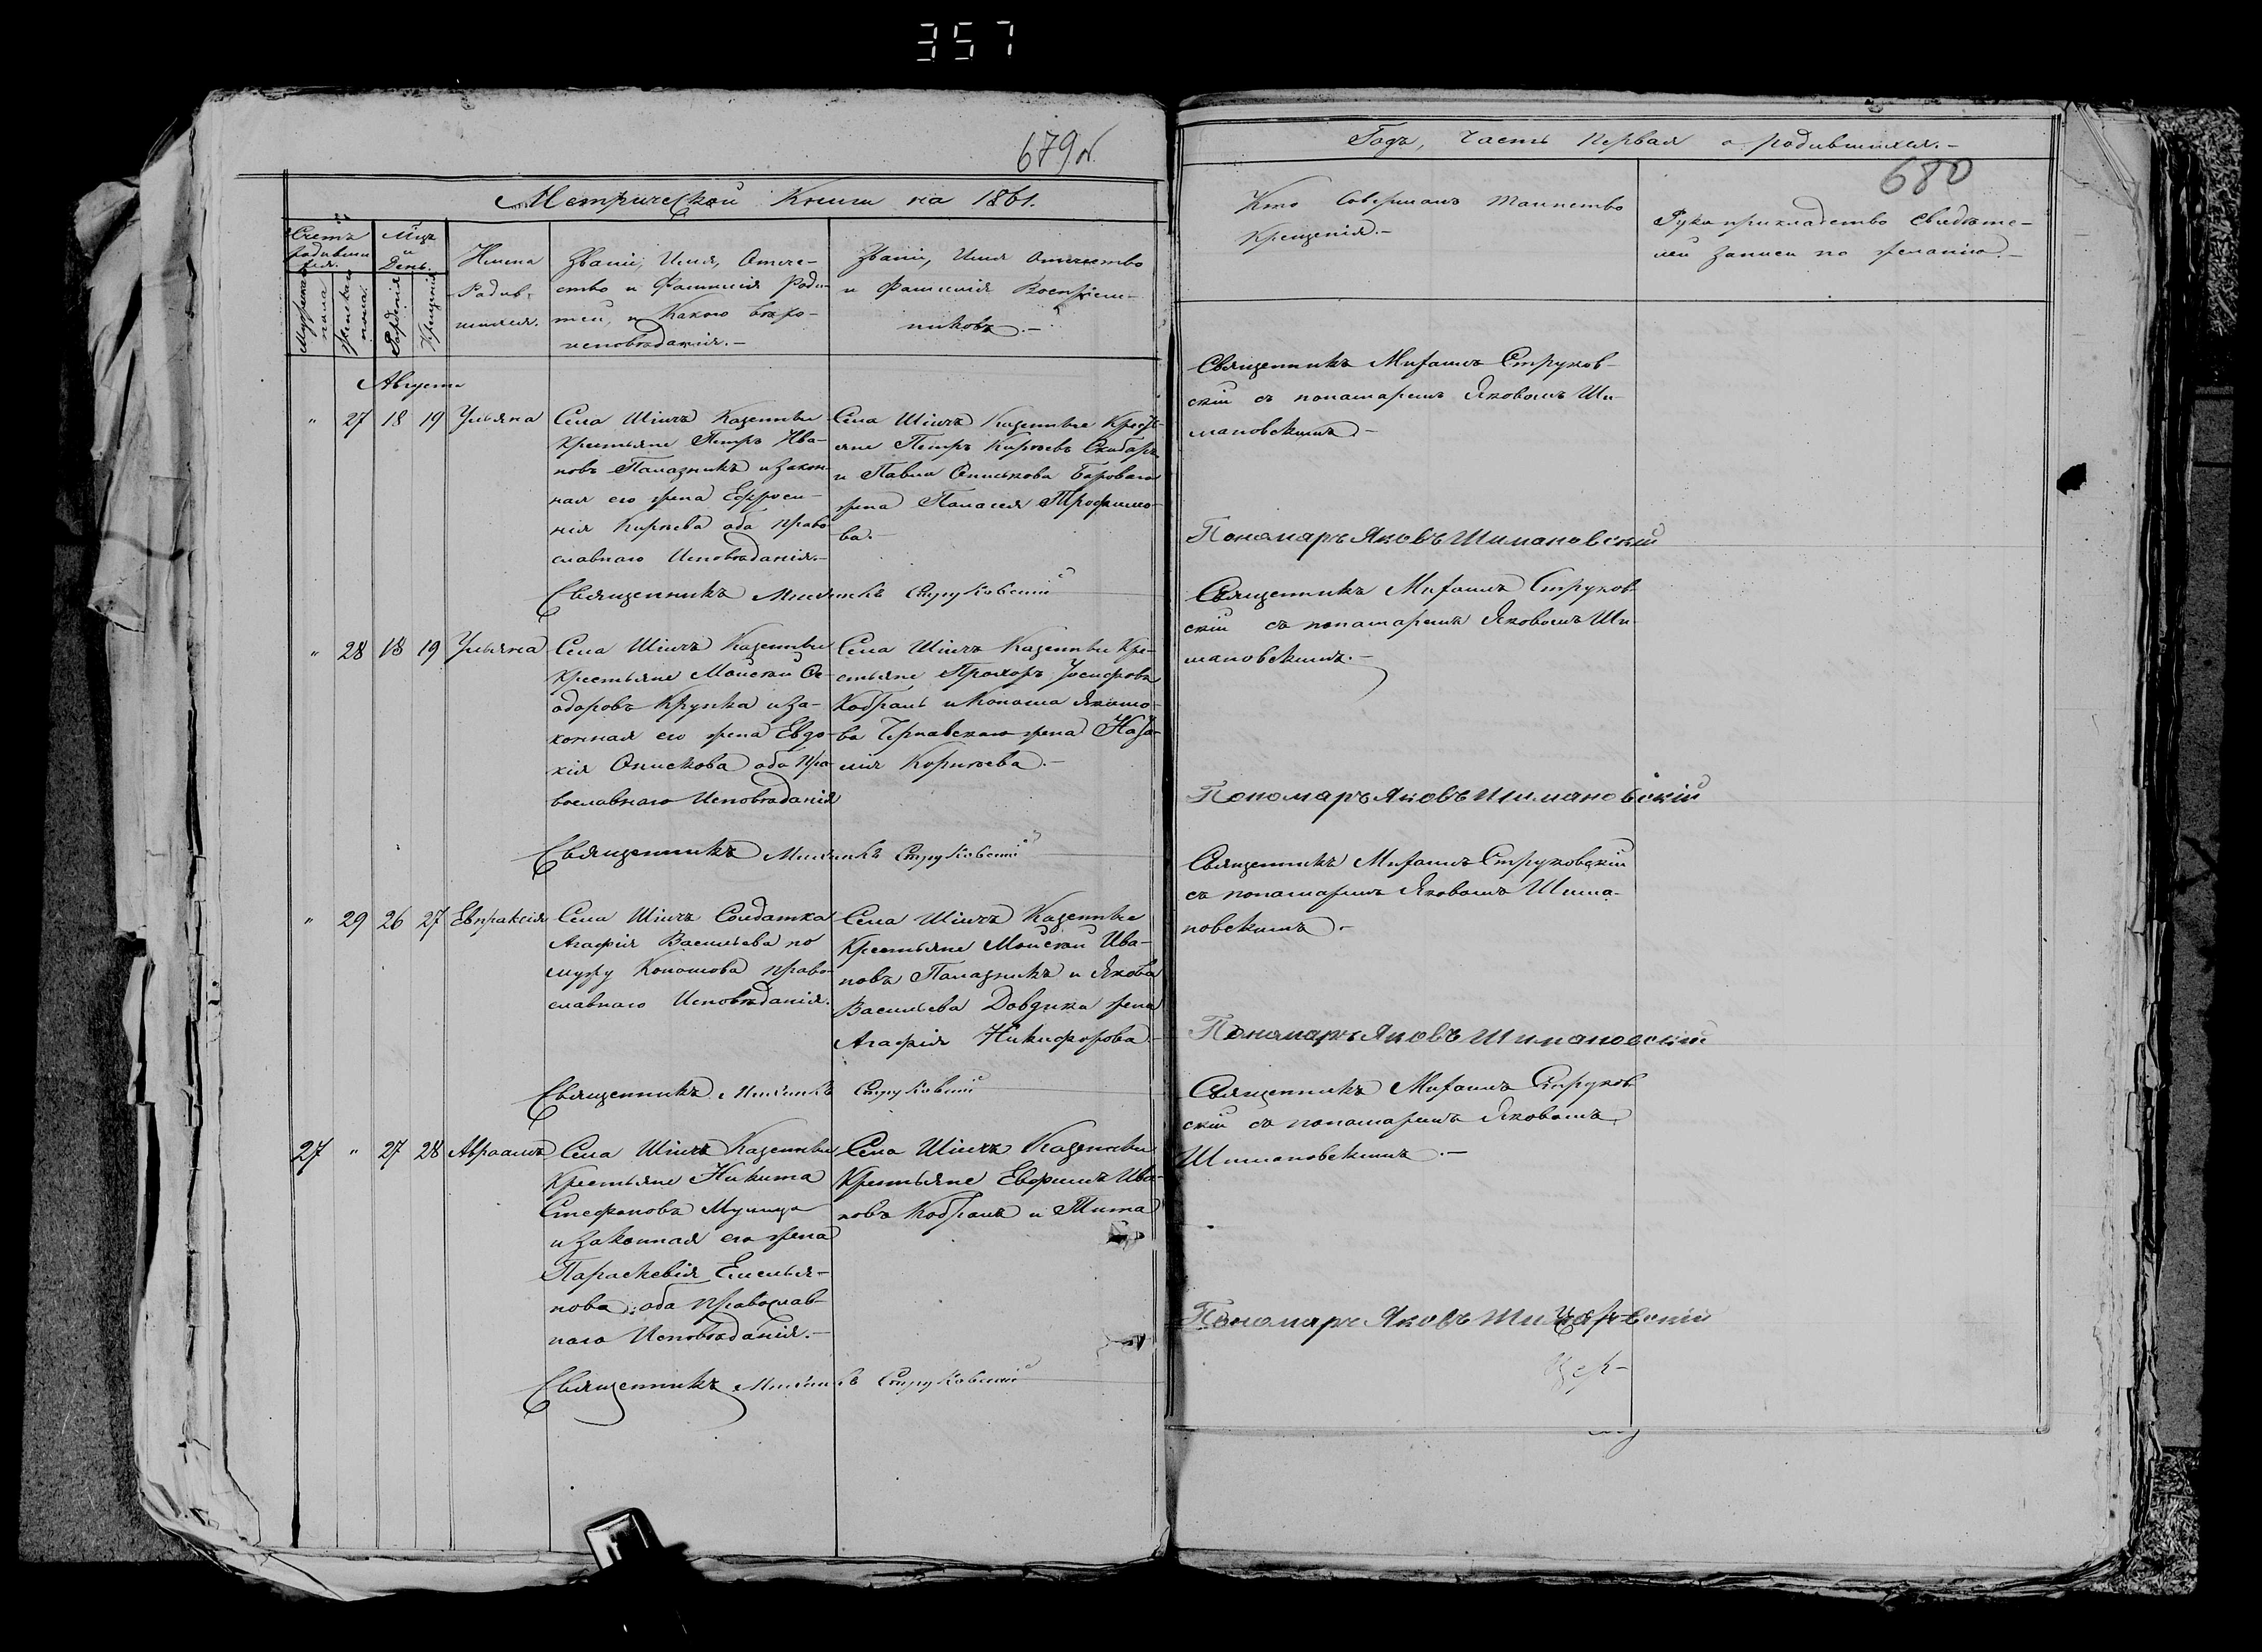 357
679
Метрической Книги на 1861.
Счетъ
родивши
хся.
Мцъ
и
День.
Имена
Родив-
шихся.
Званіе, Имя, Отече-
ство и Фамилія Роди-
телей, и Какого вѣро-
исповѣданія.-
Званіе, Имя Отчество
и Фамилія Воспріем-
никовъ.-
Мужеска пола
Женска пола
Рожденія
Крещенія
Августа
" 27 18 19 Ульяна
Села Казенные
Крестьяне Петръ Ива-
новъ Палазникъ и закон-
ная его жена Ефроси-
нія Кирѣева оба право-
славнаго Исповѣданія.-
Села Казенные Кресть-
яне Петръ Кирѣевъ
и Павла жена Трофимо-
ва.-
Священникъ Михаилъ Струковскій
" 28 18 19 Ульяна
Села Казенные
Крестьяне Мойсей Ѳе-
одоровъ Крупка и за-
конная его жена Евдо-
кія Онискова оба Пра-
вославнаго Исповѣданія
Села Казенные Кре-
стьяне Прохоръ Іосифовъ
Кобранъ и Конона
жена
Священникъ Михаилъ Струковскій
" 29 26 27 Евпраксія
Села Солдатка
Агафія Васильева по
мужу Коношова право-
славнаго Исповѣданія.
Села Казенные
Крестьяне Мойсей Ива-
новъ Палазникъ и Якова
Васильева жена
Агафія Никифорова
Священникъ Михаилъ Струковскій
27 " 27 28 Авраамъ
Села Казенные
Крестьяне Никита
Стефановъ
и Законная его жена
Параскевія Емелья-
нова оба Православ-
наго Исповѣданія.-
Села Казенные
Крестьяне Ефимъ Ива-
новъ Кобранъ и Тита
Священникъ Михаилъ Струковскій
Годъ, Часть Первая о родившихся.-
680
Кто Совершалъ Таинство
Крещенія.-
Рукоприкладство Свидѣте-
лей Записи по желанію.-
Священникъ Михаилъ Струков-
скій съ понамаремъ Яковомъ Ши-
мановскимъ.-
Пономарь Яковъ Шимановскій
Священникъ Михаилъ Струков-
скій съ понамаремъ Яковомъ Ши-
мановскимъ.-
Пономарь Яковъ Шимановскій
Священникъ Михаилъ Струковскій
съ понамаремъ Яковомъ Шима-
новскимъ.-
Пономарь Яковъ Шимановскій
Священникъ Михаилъ Струков-
скій съ понамаремъ Яковомъ
Шимановскимъ.-
Пономарь Яковъ Шимановскій